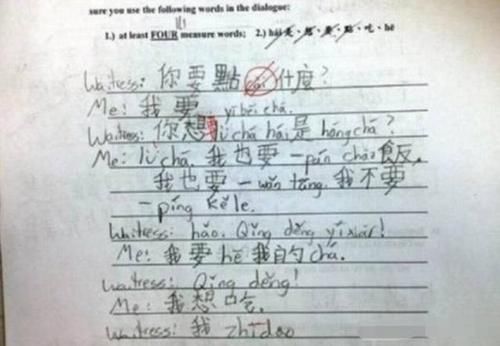 sure you use the following words in the dialogue:
1.) at least FOUR measure words; 2.) hái 是、想、要、點、吃、hē
Waitress: 你要點 什麼?
Me: 我要 yì bēi chá.
Waitress: 你想 lǜ chá hái是 hóngchá?
Me: lǜ chá. 我也要一pán chǎo飯.
我也要一wǎn tāng. 我不要
一píng kělè.
Waitress: hǎo. Qǐng děng yíxiàr!
Me: 我要 hē 我自的 chá.
Waitress: Qǐng děng!
Me: 我想吃.
Waitress: 我 zhīdao